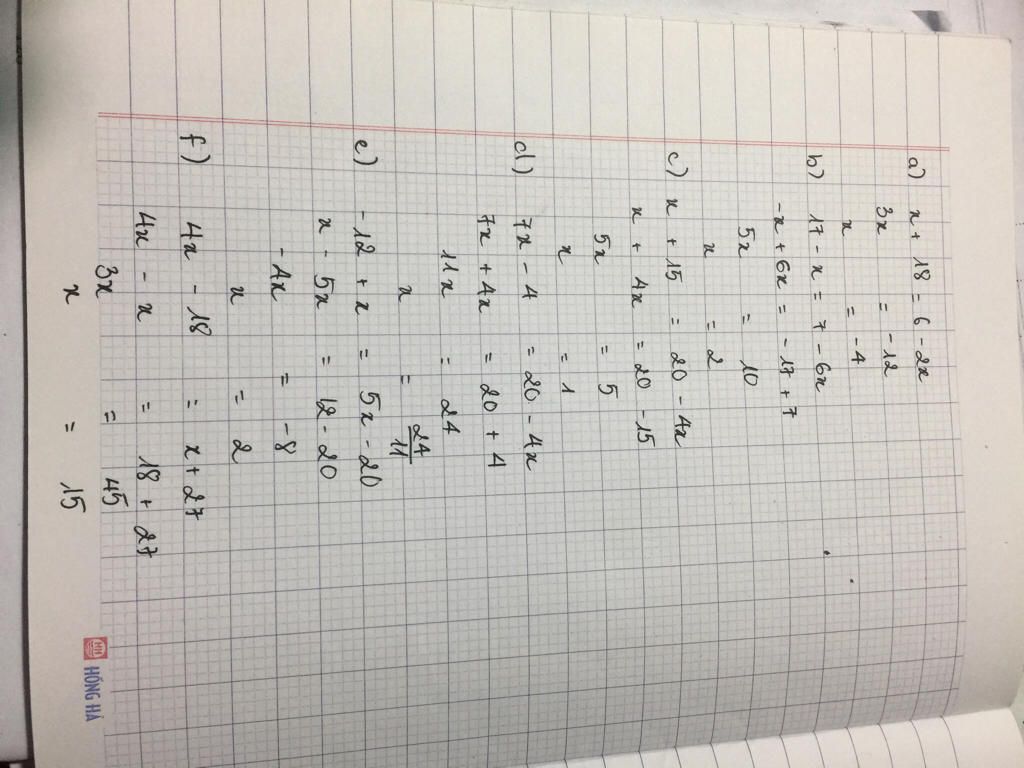 a) x + 18 = 6 - 2x
3x = -12
x = -4
b) 17 - x = 7 - 6x
-x + 6x = -17 + 7
5x = 10
x = 2
c) x + 15 = 20 - 4x
x + 4x = 20 - 15
5x = 5
x = 1
d) 7x - 4 = 20 - 4x
7x + 4x = 20 + 4
11x = 24
x = 24/11
e) -12 + x = 5x - 20
x - 5x = 12 - 20
-4x = -8
x = 2
f) 4x - 18 = x + 27
4x - x = 18 + 27
3x = 45
x = 15
HH HỒNG HÀ